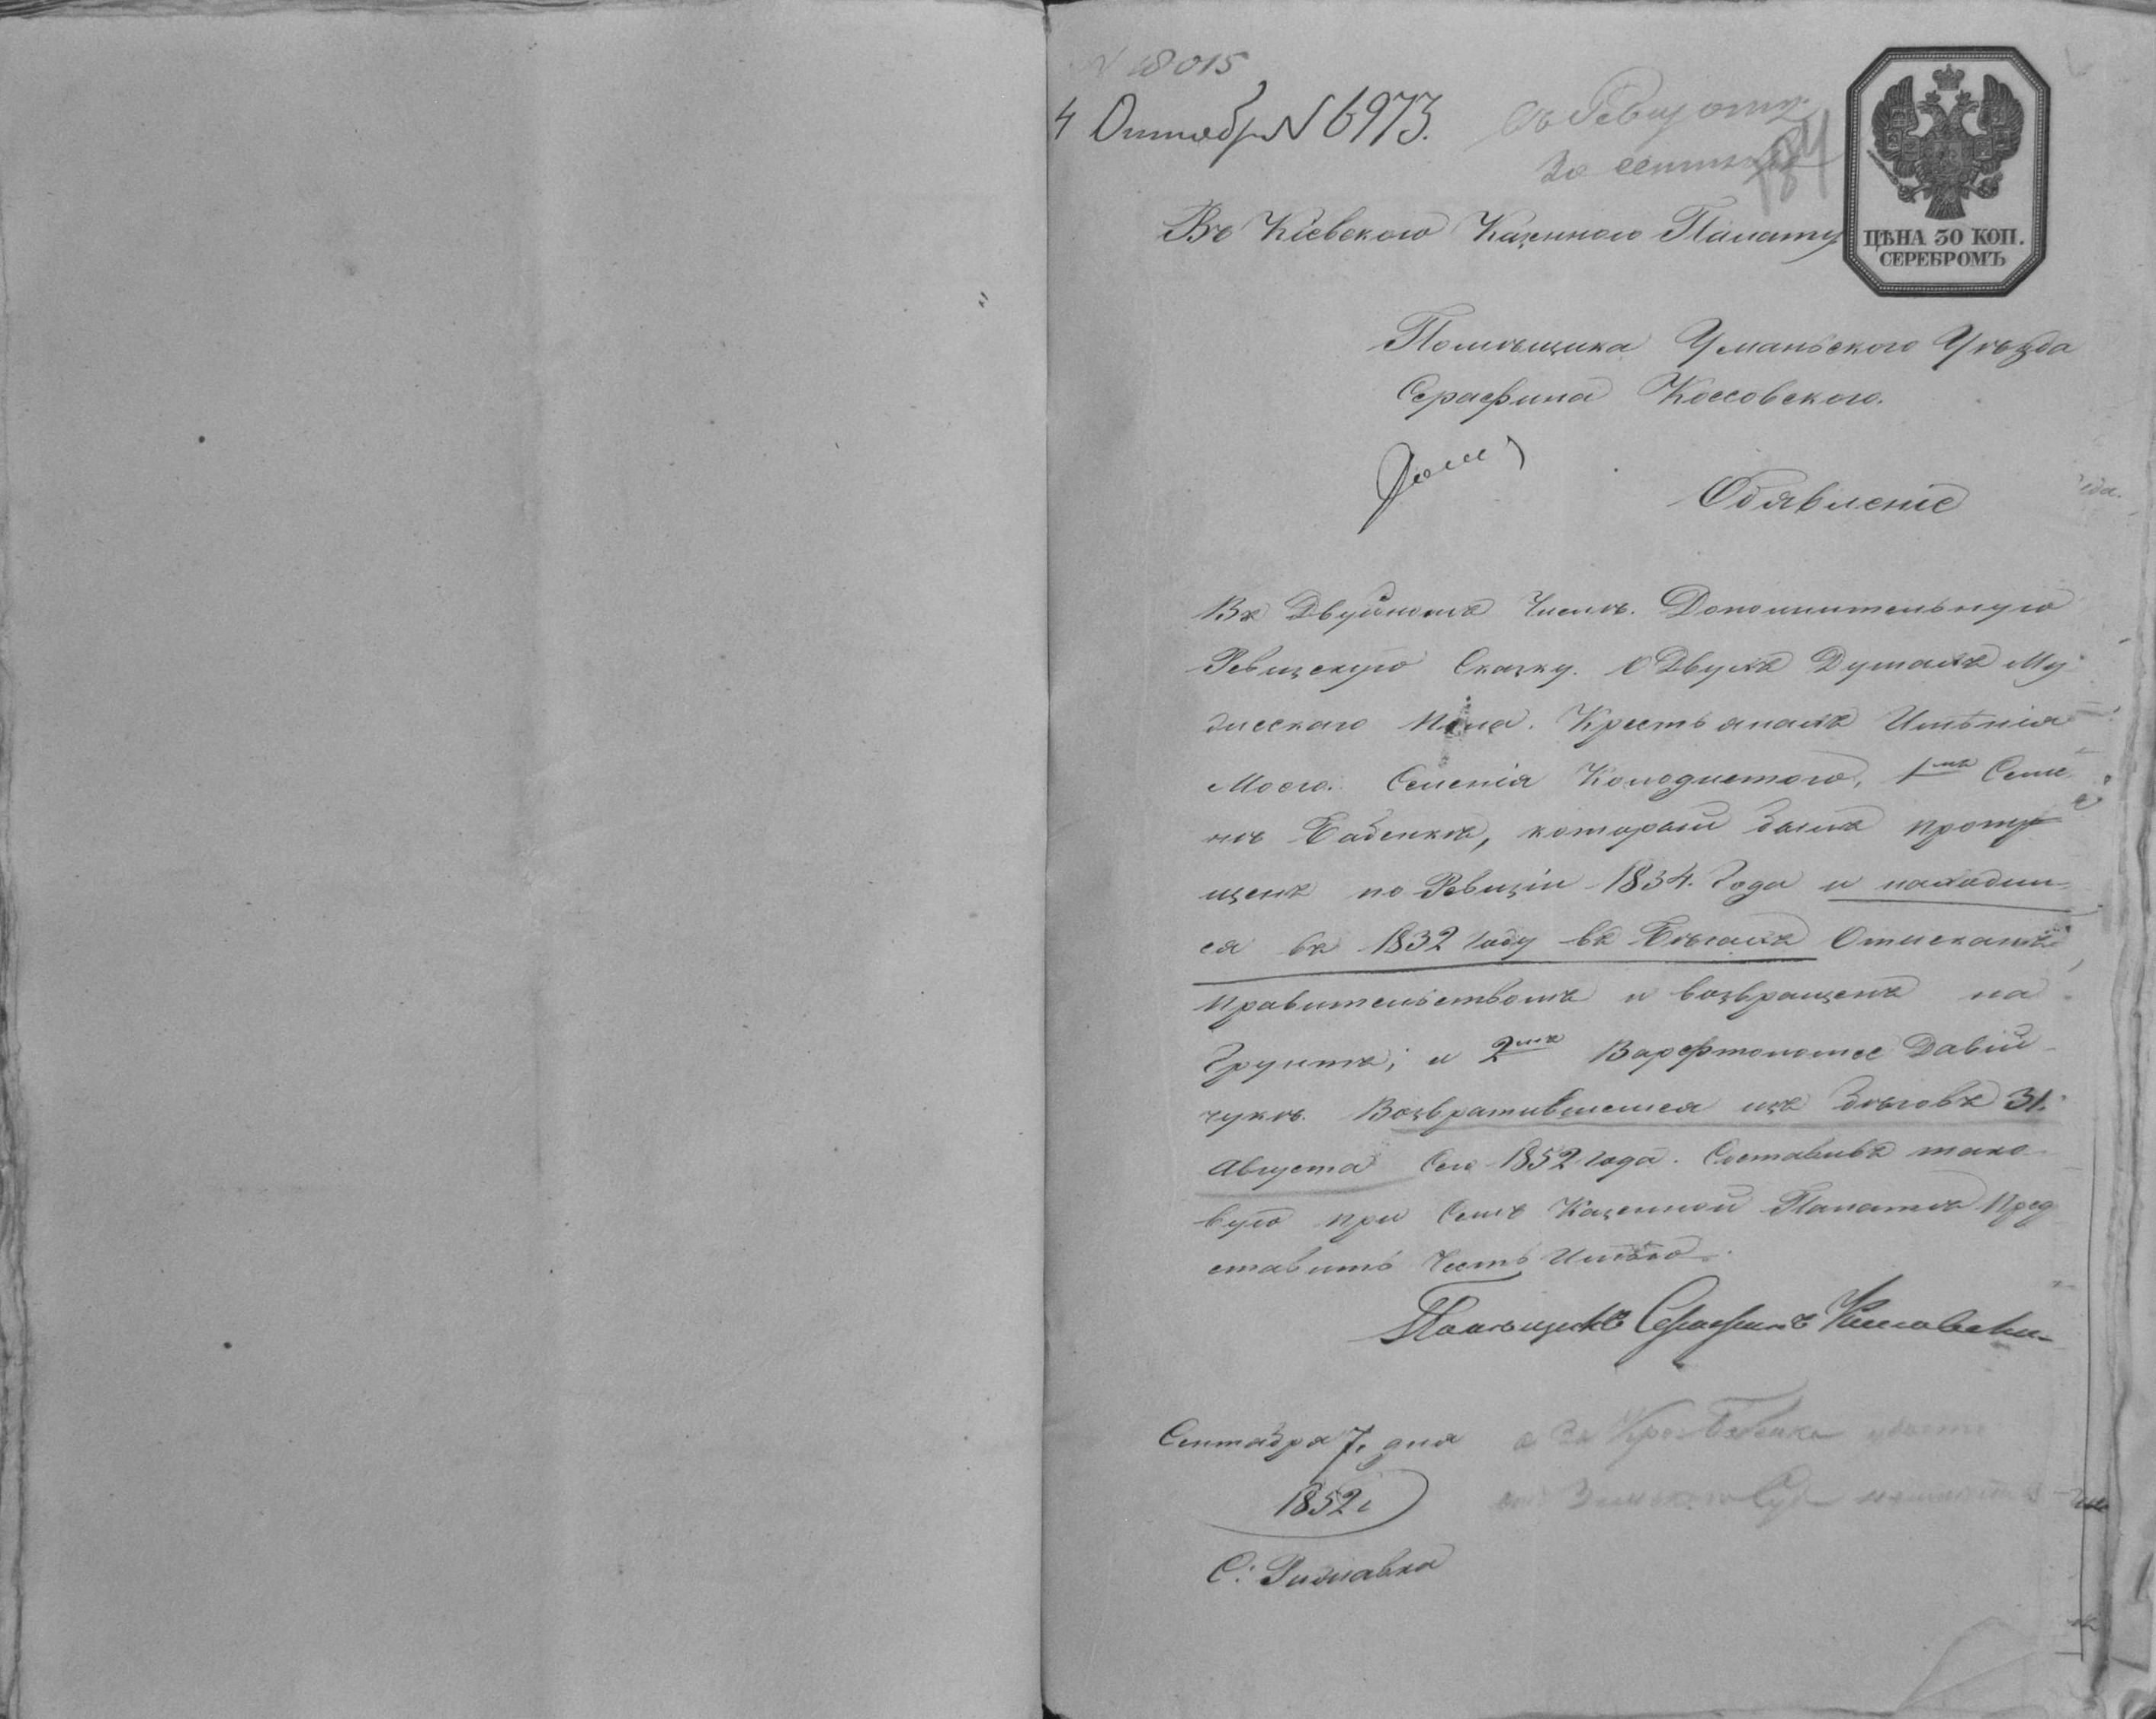 N 18015
4 Октябр N 6973.
184
ЦѢНА 30 КОП.
СЕРЕБРОМЪ
Въ Кіевского Казенного Палату
Помѣщика Уманьского Уѣзда
Серафина Коссовского.
Обявленіе
Въ Двуйномъ Числѣ. Дополнительную
Ревизскую Сказку. О Двухъ Душахъ Му
жескаго Пола. Крестьянахъ Имѣнія
Моего. Селенія Колодистого, 1мъ Семе
нѣ Бабенкѣ, которой былъ пропу
щенъ по Ревизіи 1834. Года и находил
ся въ 1832 Году въ Бѣгахъ Отисканъ
Правительствомъ и возвращенъ на
Грунтъ; и 2мъ Варфтоломее Давій
чукѣ. Возвратившемся изъ бѣговъ 31.
Августа Сего 1852 Года. Составивъ тако
вую при Семъ Казенной Палатѣ Пред
ставить Честь Имѣю.
Помѣщикъ Серафинъ Коссовски
Сентабря 7. дня
1852 г
С: Рижавка